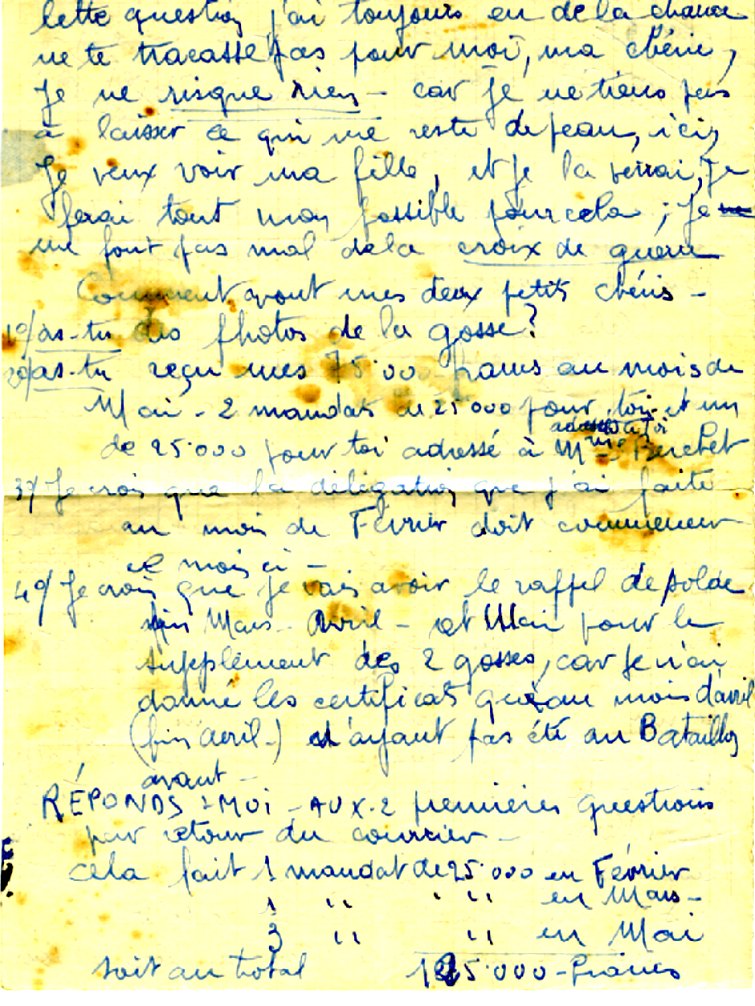 cette question j'ai toujours eu de la chance
ne te tracasse pas pour moi, ma chérie,
Je ne risque rien - car je ne tiens pas
à laisser ce qui me reste de peau, ici,
Je veux voir ma fille, et je la verrai, Je
ferai tout mon possible pour cela ; Je
me fout pas mal de la croix de guerre
Comment vont mes deux petits chéris -
1°/ as-tu des photos de la gosse ?
2°/ as-tu reçu mes 75.000 francs au mois de
Mai - 2 mandats de 25000 pour toi et un
de 25.000 pour toi adressé à Mme
3°/ Je crois que la délégation que j'ai faite
au mois de Février doit commencer
ce mois ci -
4°/ Je crois que je vais avoir le rappel de solde
Mars - Avril - et Mai pour le
supplément des 2 gosses, car je n'ai
donné les certificats qu'au mois d'avril
(fin avril -) n'ayant pas été au Bataillon
avant -
RÉPONDS-MOI - AUX 2 premières questions
par retour du courrier -
cela fait 1 mandat de 25.000 en Février
1 " " " en Mars -
3 " " en Mai
soit au total 125.000 - francs